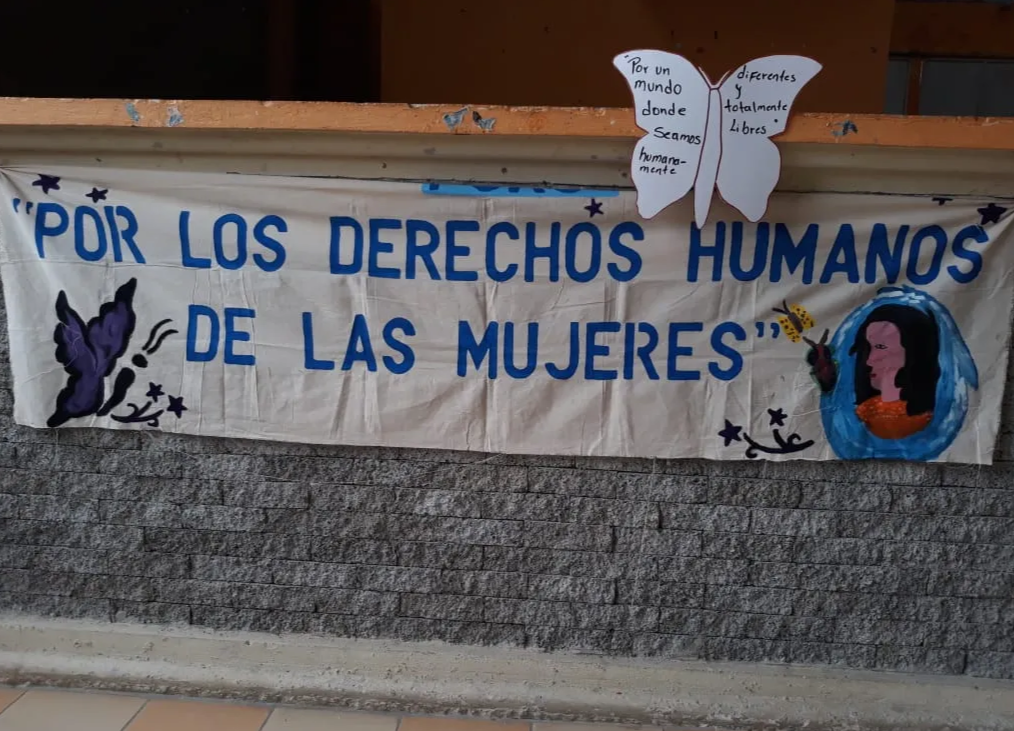 "Por un
mundo
donde
Seamos
humana-
mente
diferentes
y
totalmente
Libres"
"POR LOS DERECHOS HUMANOS
DE LAS MUJERES"